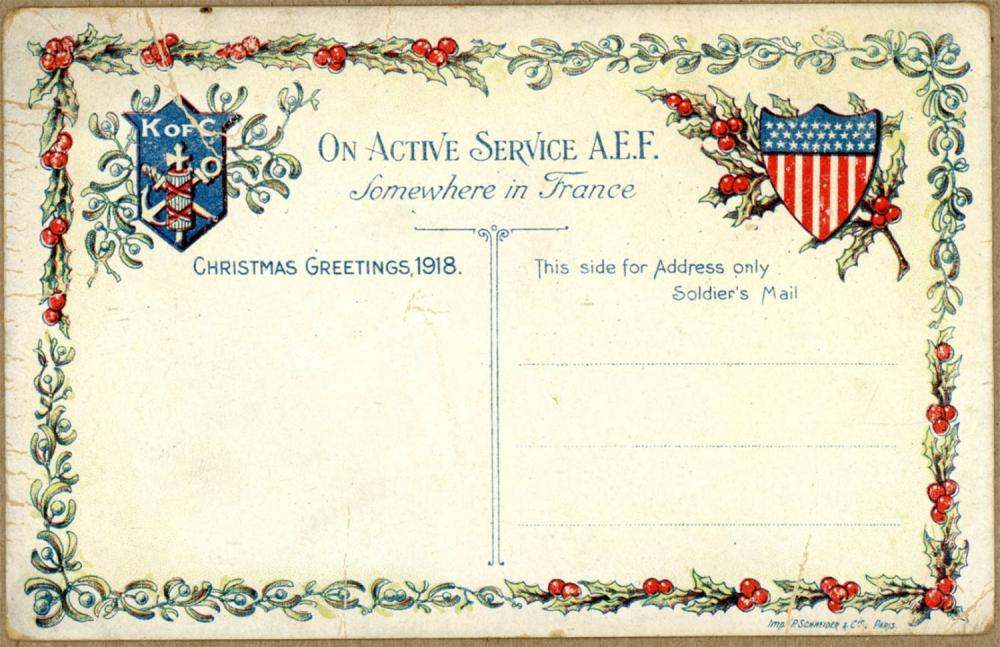 K OF C
ON ACTIVE SERVICE A.E.F.
Somewhere in France
CHRISTMAS GREETINGS, 1918.
This side for Address only
Soldier's Mail
Imp. P. SCHNEIDER & Cie. PARIS.